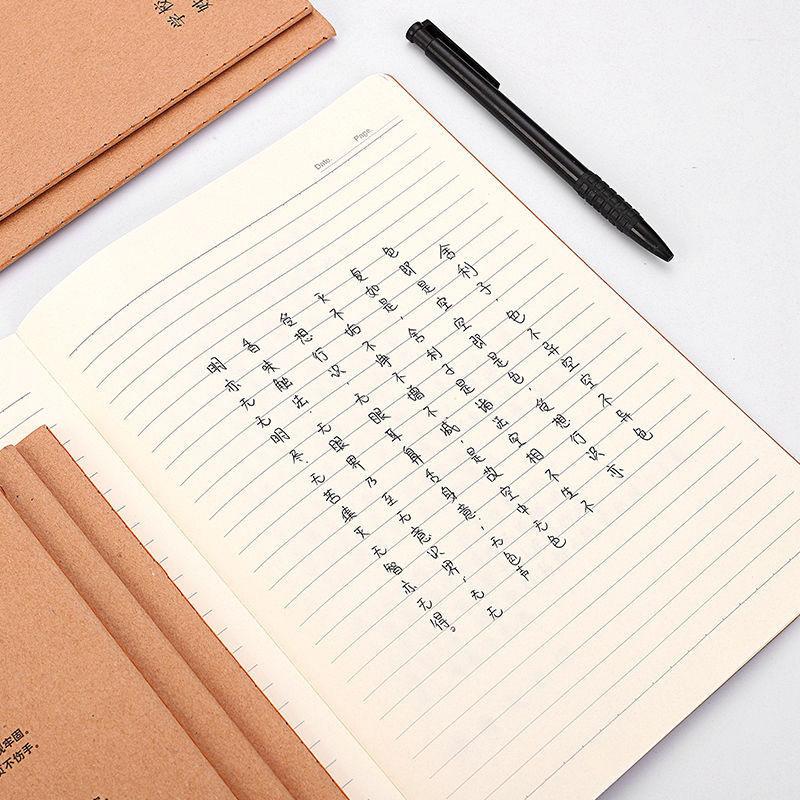 学校
姓
舍利子,色不异空空不异色
色即是空空即是色,受想行识亦
复如是,舍利子是诸法空相不生不
灭不垢不净不增不减,是故空中无色
受想行识,无眼耳鼻舌身意,无色声
香味触法,无眼界乃至无意识界,无无
明亦无无明尽.无苦集灭无智亦无得。
牢固。
不伤手。